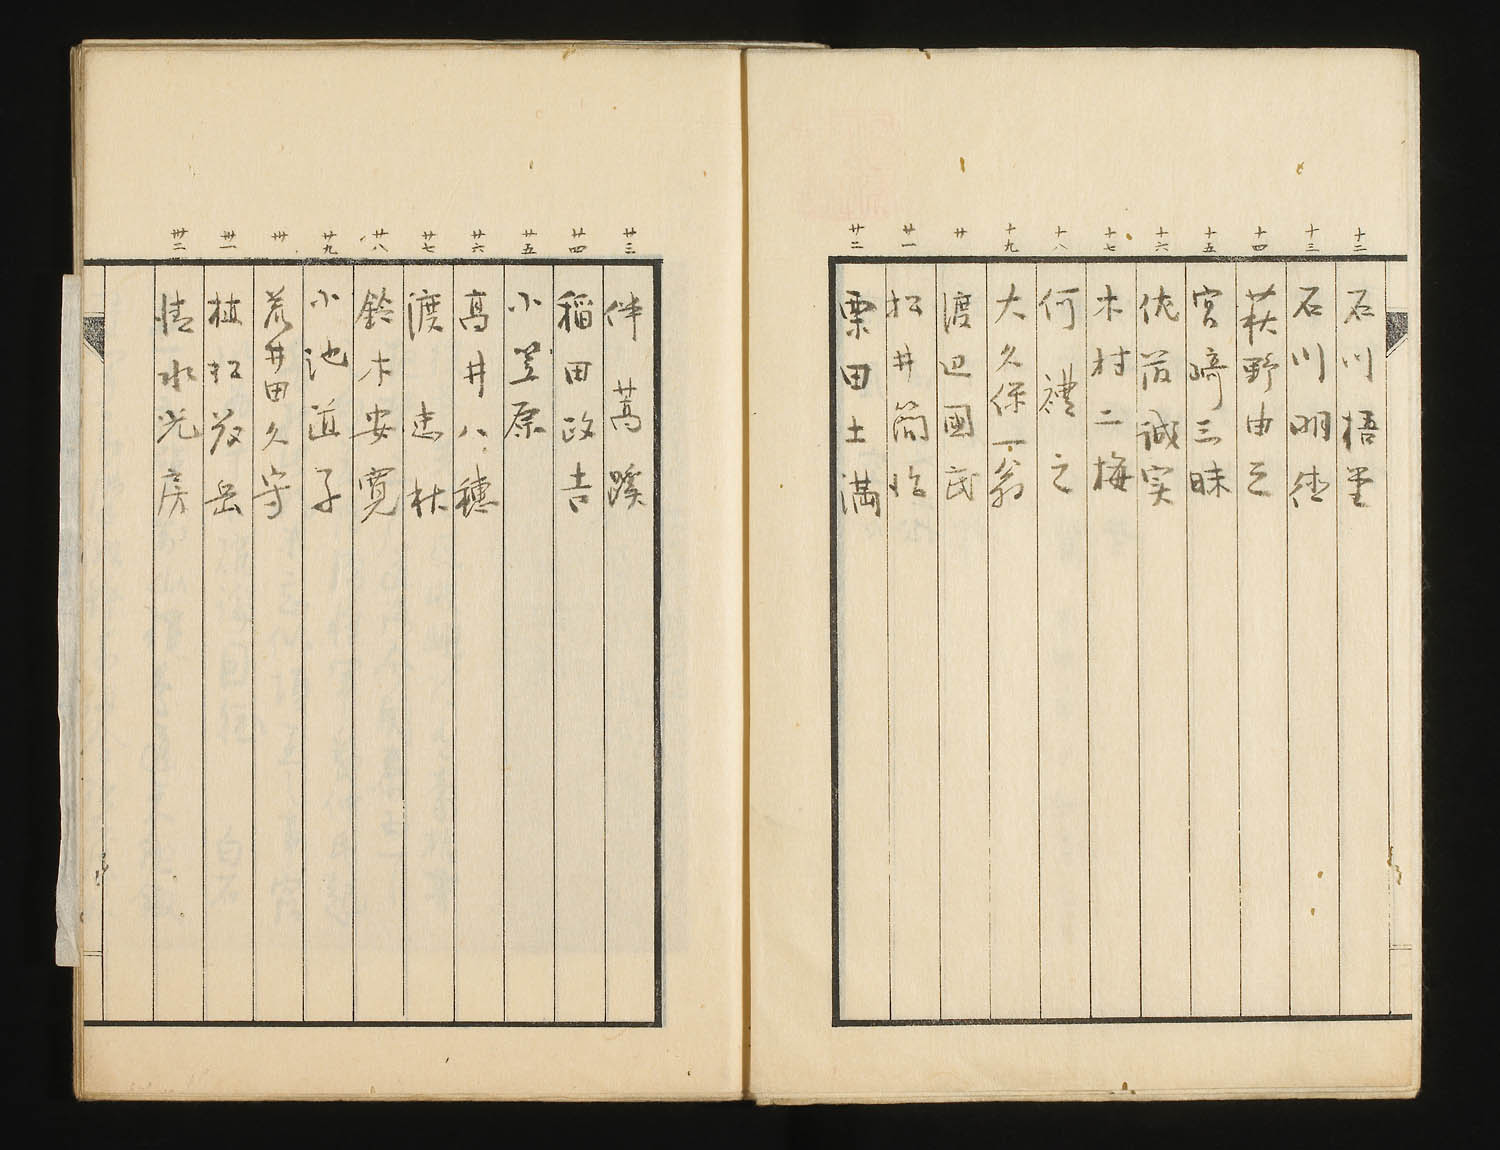 十二 石川梧堂
十三 石川明徳
十四 萩野由之
十五 宮崎三昧
十六 依田誠実
十七 木村二梅
十八 何禮之
十九 大久保一翁
廿 渡辺國武
廿一 松井簡治
廿二 栗田土満
廿三 伴蒿蹊
廿四 稲田政吉
廿五 小笠原
廿六 高井八穂
廿七 渡 志
廿八 鈴木安寛
廿九 小池道子
卅 荒井田久守
卅一 植松茂岳
卅二 清水光房